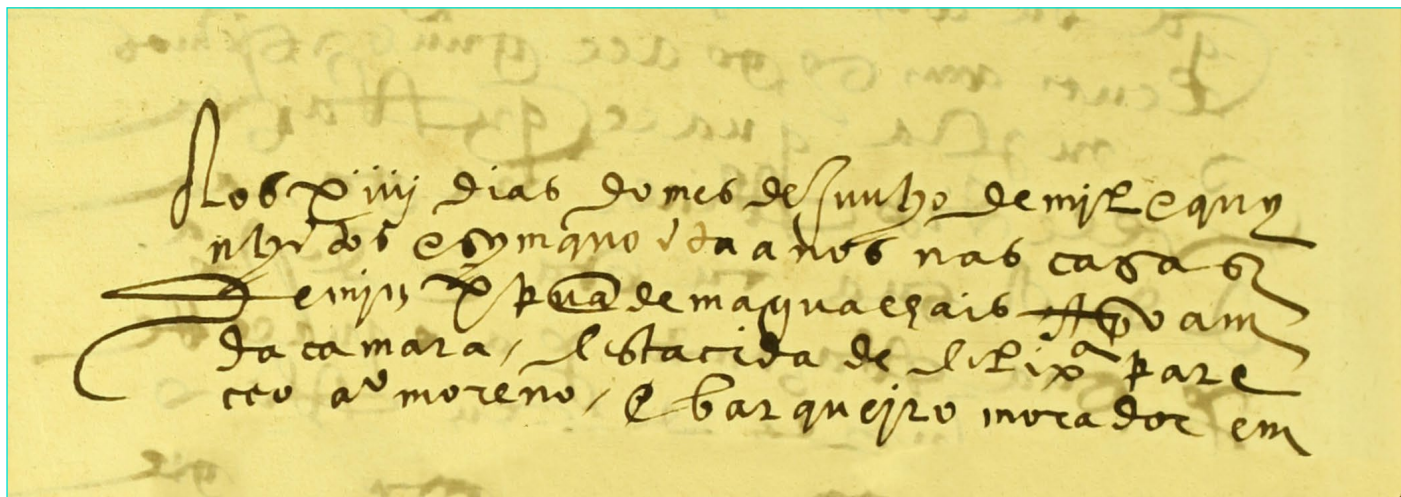 Aos xiiij dias do mes de Junho de mjl e quy
nhẽtos e symquoẽta anos nas casas
de mjm xpuã de maguaLhais spuam
da camara / desta cida de de lixª pare
ceo aº moreno / E barqueiro morador em